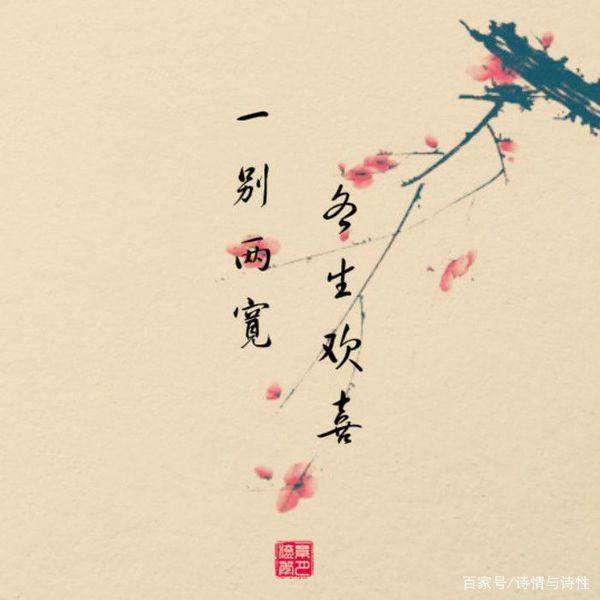 一别两寬
各生欢喜
百家号/诗情与诗性